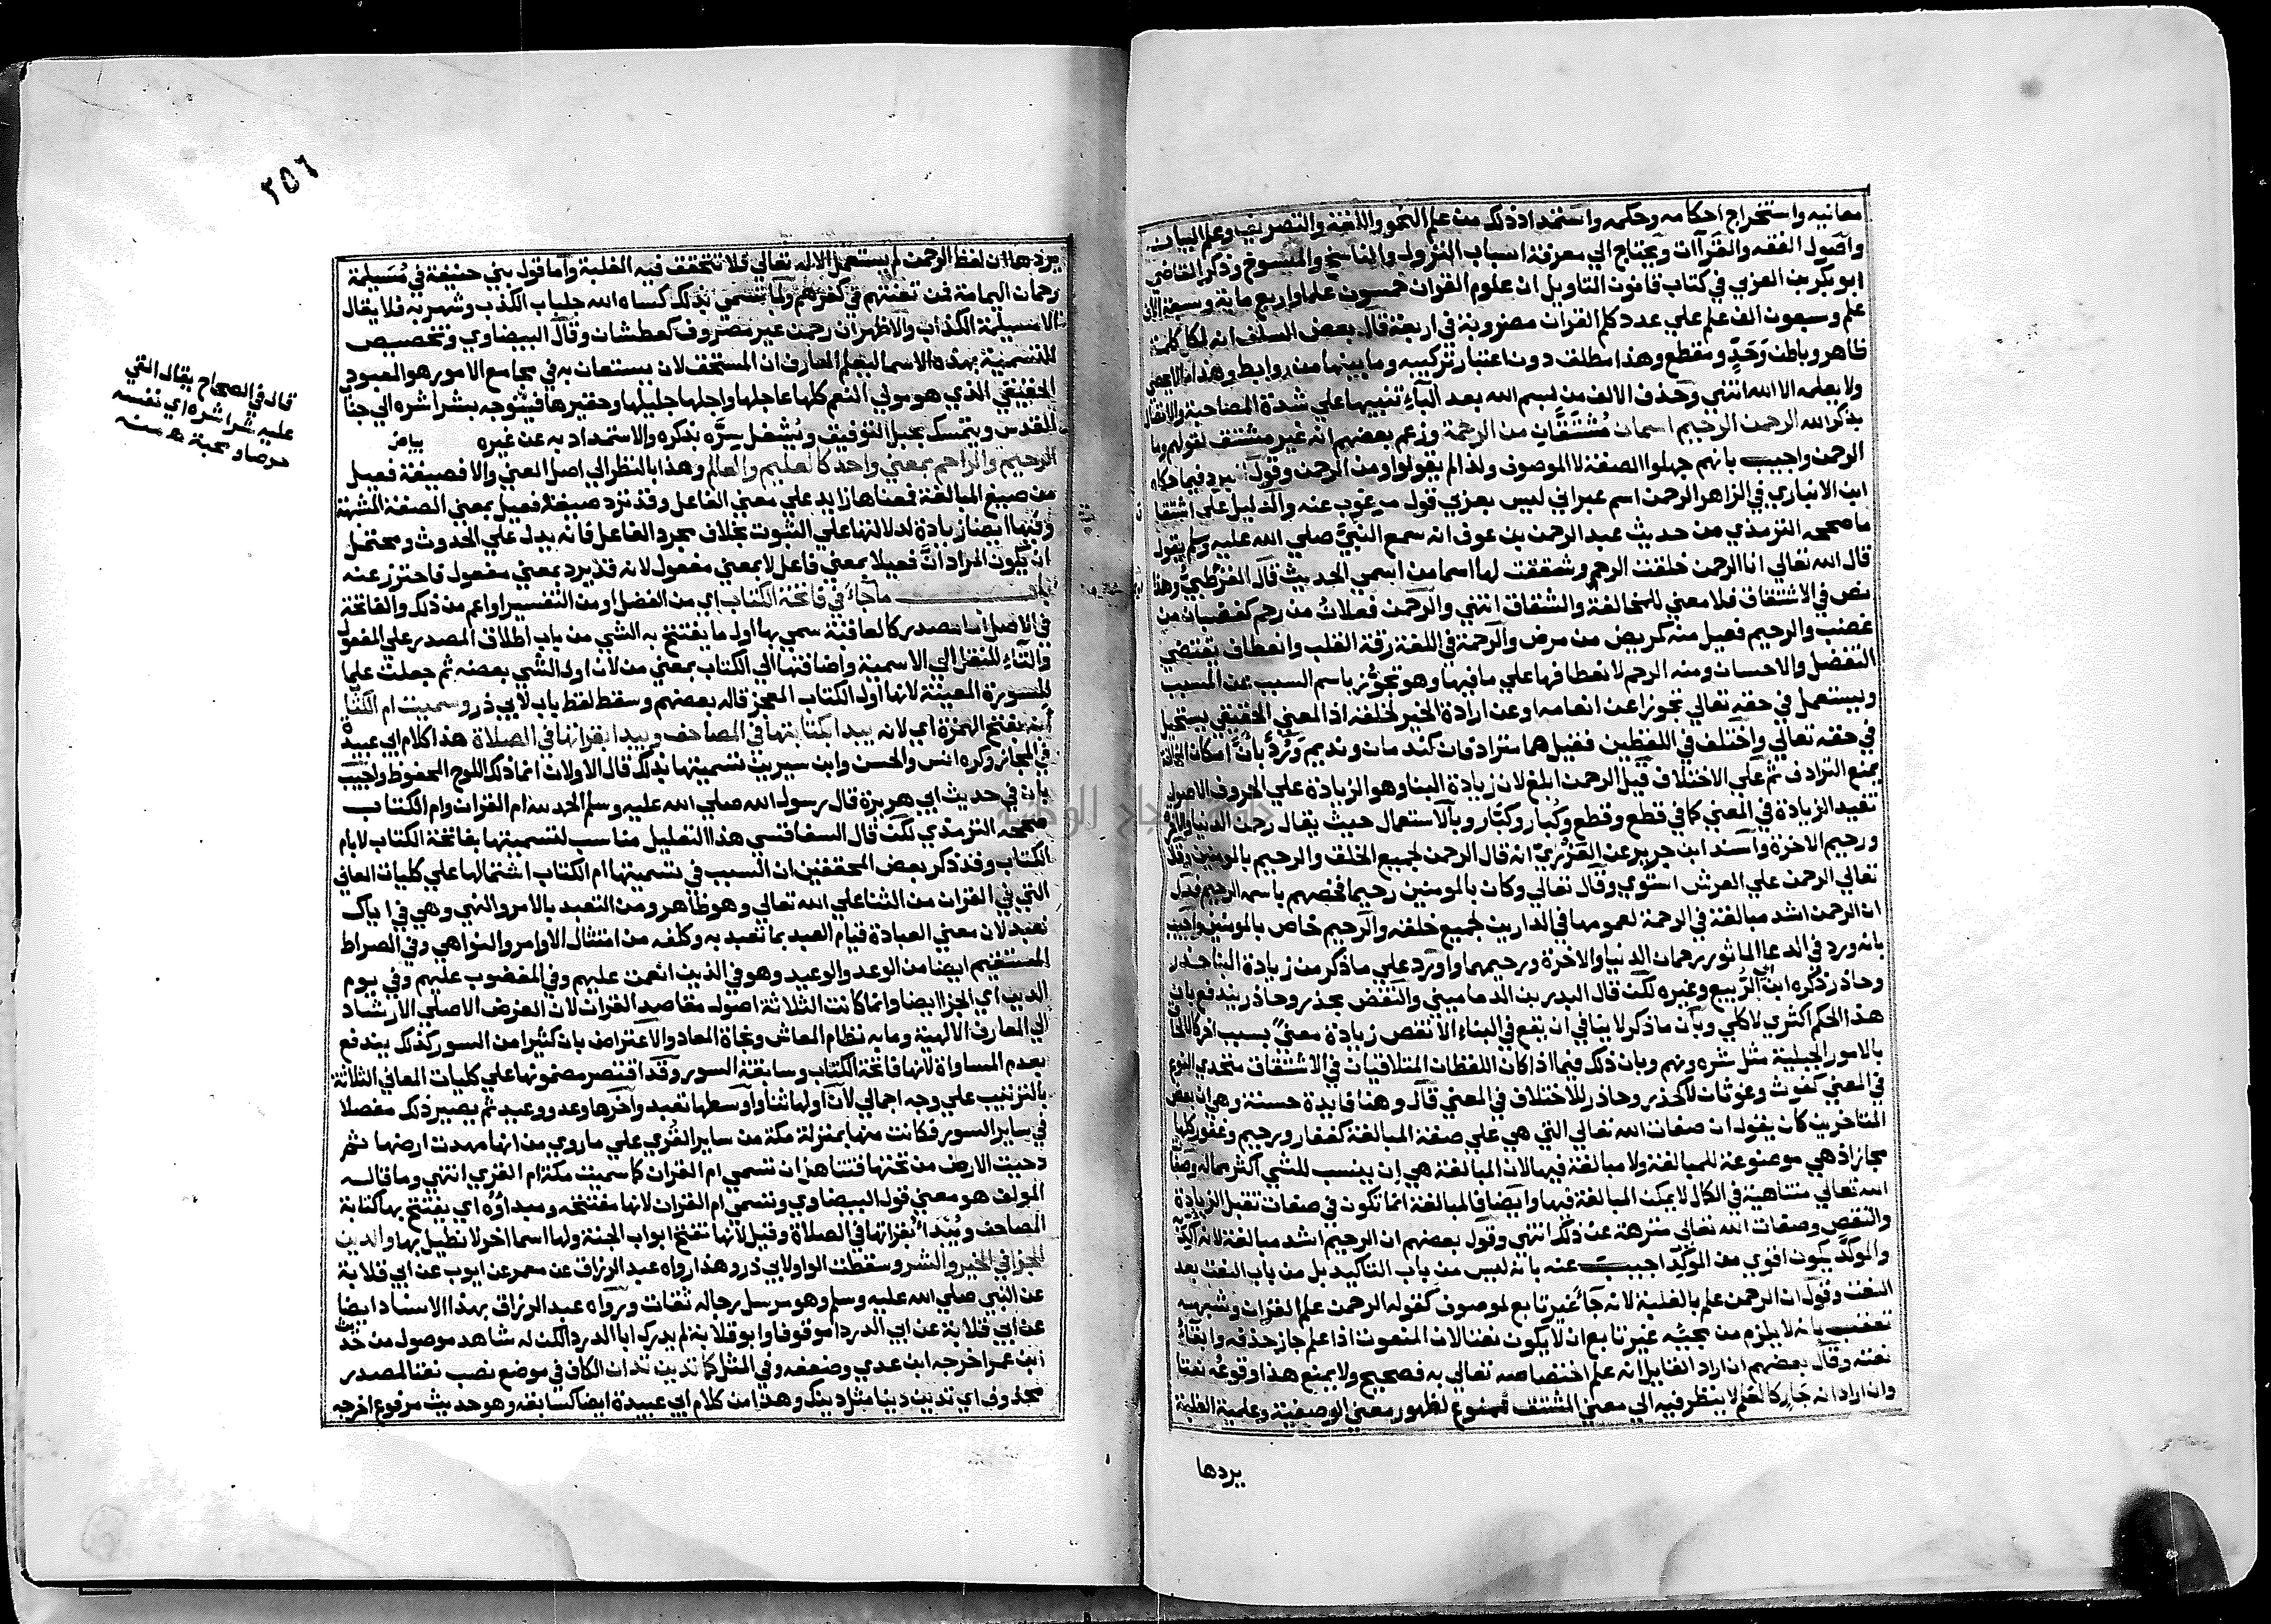 معانيه واستخراج احكامه وحكمه واستمداد ذلك من علم النحو واللغة والتصريف وعلم البيان
واصول الفقه والقراآت ويحتاج الي معرفة اسباب النزول والناسخ والمنسوخ وذكر القاضي
ابو بكر بن العربي في كتاب قانون التاويل ان علوم القران خمسون علما واربع ماية وسبعة الاف
علم وسبعون الف علم علي عدد كلم القران مضروبة في اربعة قال بعض السلف ان لكل كلمة
ظاهر وباطن وحد ومقطع وهذا مطلق دون اعتبار تركيبه وما بينها من روابط وهذا مالا يحصي
ولا يعلمه الا الله انتهي وحذف الالف من بسم الله بعد الباء تنبيها علي شدة المصاحبة والاتصال
بذكر الله الرحمن الرحيم اسمان مشتقان من الرحمة وزعم بعضهم انه غير مشتق لقولهم وما
الرحمن واجيب بانهم جهلوا الصفة لا الموصوف ولذا لم يقولوا ومن الرحمن وقول المبرد فيما حكاه
ابن الانباري في الزاهر الرحمن اسم عبراني ليس بعربي قول مرغوب عنه والدليل علي اشتقا
ما صححه الترمذي من حديث عبد الرحمن بن عوف انه سمع النبي صلي الله عليه وسلم يقول
قال الله تعالي انا الرحمن خلقت الرحم وشققت لها اسما من اسمي الحديث قال القرطبي وهذا
نص في الاشتقاق فلا معني للمخالفة والشقاق انتهي والرحمن فعلان من رحم كغضبان من
غضب والرحيم فعيل منه كمريض من مرض والرحمة في اللغة رقة القلب وانعطاف يقتضي
التفضل والاحسان ومنه الرحم لانعطافها علي ما فيها وهو تجوز باسم السبب عن المسبب
ويستعمل في حقه تعالي تجوزا عن انعامه او عن ارادة الخير لخلقه اذ المعني الحقيقي يستحيل
في حقه تعالي واختلف في اللفظين فقيل هما مترادفان كندمان ونديم ورد بان امكان المخالفة
يمنع الترادف ثم علي الاختلاف قيل الرحمن ابلغ لان زيادة البنا وهو الزيادة علي الحروف الاصول
تفيد الزيادة في المعني كما في قطع وقطع وكبار وكبار وبالاستعمال حيث يقال رحمن الدنيا والاخرة
ورحيم الاخرة واسند ابن جرير عن العزرمي انه قال الرحمن لجميع الخلق والرحيم بالمومنين وقال
تعالي الرحمن علي العرش استوي وقال تعالي وكان بالمومنين رحيما فخصهم باسمه الرحيم فدل
ان الرحمن اشد مبالغة في الرحمة لعمومها في الدارين لجميع خلقه والرحيم خاص بالمومنين واجيب
بانه ورد في الدعا الماثور رحمان الدنيا والاخرة ورحيمهما واورد علي ما ذكر من زيادة البنا حذر
وحاذر ذكره ابن ابي الربيع وغيره لكن قال البدر بن الدماميني والنقض بحذر وحاذر يندفع بان
هذا الحكم اكثري لا كلي وبان ما ذكر لا ينافي ان يقع في البناء الانقص زيادة معني بسبب اخر كالالحاق
بالامور الجبلية مثل شره ونهم وبان ذلك فيما اذا كان اللفظان المتلاقيان في الاشتقاق متحدي النوع
في المعني كغرث وغرثان لا كحذر وحاذر للاختلاف في المعني قال وهنا فايدة حسنة وهي ان بعض
المتاخرين كان يقول ان صفات الله تعالي التي هي علي صفة المبالغة كغفار ورحيم وغفور كلها
مجاز اذ هي موضوعة للمبالغة ولا مبالغة فيها لان المبالغة هي ان ينسب للشي اكثر مما له وصفات
الله تعالي متناهية في الكمال لا يمكن المبالغة فيها وايضا فالمبالغة انما تكون في صفات تقبل الزيادة
والنقص وصفات الله تعالي منزهة عن ذلك انتهي وقول بعضهم ان الرحيم اشد مبالغة لانه اكد به
والموكد يكون اقوي من الموكد اجيب عنه بانه ليس من باب التاكيد بل من باب النعت بعد
النعت وقول ان الرحمن علم بالغلبة لانه جاء غير تابع لموصوف كقوله الرحمن علم القران وشبهه
تعقب بانه لا يلزم من مجيئه غير تابع ان لا يكون نعتا لان المنعوت اذا علم جاز حذفه وابقاء
نعته وقال بعضهم ان اراد القايل انه علم اختصاصه تعالي به فصحيح ولا يمنع هذا وقوعه نعتا
وان اراد انه جار كالعلم لا ينظر فيه الي معني المشتق فممنوع لظهور معني الوصفية وعلمية الغلبة
يردها
٢٥٦
يردها ان لفظ الرحمن لم يستعمل الا لله تعالي فلا تتحقق فيه الغلبة واما قول بني حنيفة في مسيلمة
رحمان اليمامة فمن تعنتهم في كفرهم ولما تسمي بذلك كساه الله جلباب الكذب وشهر به فلا يقال
الا مسيلمة الكذاب والاظهر ان رحمن غير مصروف كعطشان وقال البيضاوي وتخصيص
التسمية بهذه الاسما ليعلم العارف ان المستحق لان يستعان به في مجامع الامور هو المعبود
الحقيقي الذي هو مولي النعم كلها عاجلها واجلها جليلها وحقيرها فيتوجه بشراشره الي جناب
القدس ويتمسك بحبل التوفيق ويشغل سره بذكره والاستمداد به عن غيره بياض
الرحيم والراحم بمعني واحد كالعليم والعالم وهذا بالنظر الي اصل المعني والا فصيغة فعيل
من صيغ المبالغة فمعناها زايد علي معني الفاعل وقد ترد صيغة فعيل بمعني الصفة المشبهة
وفيها ايضا زيادة لدلالتها علي الثبوت بخلاف مجرد الفاعل فانه يدل علي الحدوث ويحتمل
ان يكون المراد ان فعيلا بمعني فاعل لا بمعني مفعول لانه قد يرد بمعني مفعول فاحترز عنه
باب ما جاء في فاتحة الكتاب اي من الفضل او من التفسير او اعم من ذلك والفاتحة
في الاصل اما مصدر كالعافية سمي بها اول ما يفتتح به الشي من باب اطلاق المصدر علي المفعول
والتاء للنقل الي الاسمية واضافتها الي الكتاب بمعني من لان اول الشي بعضه ثم جعلت علما
للسورة المعينة لانها اول الكتاب المعجز قاله بعضهم وسقط لفظ باب لابي ذر وسميت ام الكتاب
انه بفتح الهمزة اي لانه يبدا بكتابتها في المصاحف ويبدا بقراتها في الصلاة هذا كلام ابي عبيدة
في المجاز وكره انس والحسن وابن سيرين تسميتها بذلك قال الاولان انما ذلك اللوح المحفوظ واجيب
بان في حديث ابي هريرة قال رسول الله صلي الله عليه وسلم الحمد لله ام القران وام الكتاب
صححه الترمذي لكن قال السفاقسي هذا التعليل مناسب لتسميتها بفاتحة الكتاب لا بام
الكتاب وقد ذكر بعض المحققين ان السبب في تسميتها ام الكتاب اشتمالها علي كليات المعاني
التي في القران من الثنا علي الله تعالي وهو ظاهر ومن التعبد بالامر والنهي وهي في اياك
نعبد لان معني العبادة قيام العبد بما تعبد به وكلفه من امتثال الاوامر والنواهي وفي الصراط
المستقيم ايضا من الوعد والوعيد وهو في الذين انعمت عليهم وفي المغضوب عليهم وفي يوم
الدين اي الجزا ايضا وانما كانت الثلاثة اصول مقاصد القران لان الغرض الاصلي الارشاد
الي المعارف الالهية وما به نظام المعاش ونجاة المعاد والاعتراض بان كثيرا من السور كذلك يندفع
بعدم المساواة لانها فاتحة الكتاب وسابقة السور وقد اقتصر مضمونها علي كليات المعاني الثلاثة
بالترتيب علي وجه اجمالي لان اولها ثنا واوسطها تعبد واخرها وعد ووعيد ثم يصير ذلك مفصلا
في ساير السور فكانت منها بمنزلة مكة من ساير القري علي ما روي من انها مهدت ارضها ثم
دحيت الارض من تحتها فتتاهل ان تسمي ام القران كما سميت مكة ام القري انتهي وما قاله
المولف هو معني قول البيضاوي وتسمي ام القران لانها مفتتحه ومبداؤه اي يفتتح بها كتابة
المصاحف ويبدأ بقراتها في الصلاة وقيل لانها تفتح ابواب الجنة ولها اسما اخر لا نطيل بها والدين
الجزا في الخير والشر وسقطت الواو لابي ذر وهذا رواه عبد الرزاق عن معمر عن ايوب عن ابي قلابة
عن النبي صلي الله عليه وسلم وهو مرسل رجاله ثقات ورواه عبد الرزاق بهذا الاسناد ايضا
عن ابي قلابة عن ابي الدردا موقوفا وابو قلابة لم يدرك ابا الدردا لكن له شاهد موصول من حديث
ابن عمر اخرجه ابن عدي وضعفه وفي المثل كما تدين تدان الكاف في موضع نصب نعتا لمصدر
محذوف اي تدين دينا مثل دينك وهذا من كلام ابي عبيدة ايضا كسابقه وهو حديث مرفوع اخرجه
قال في الصحاح يقال القي
عليه شراشره اي نفسه
حرصا ومحبة